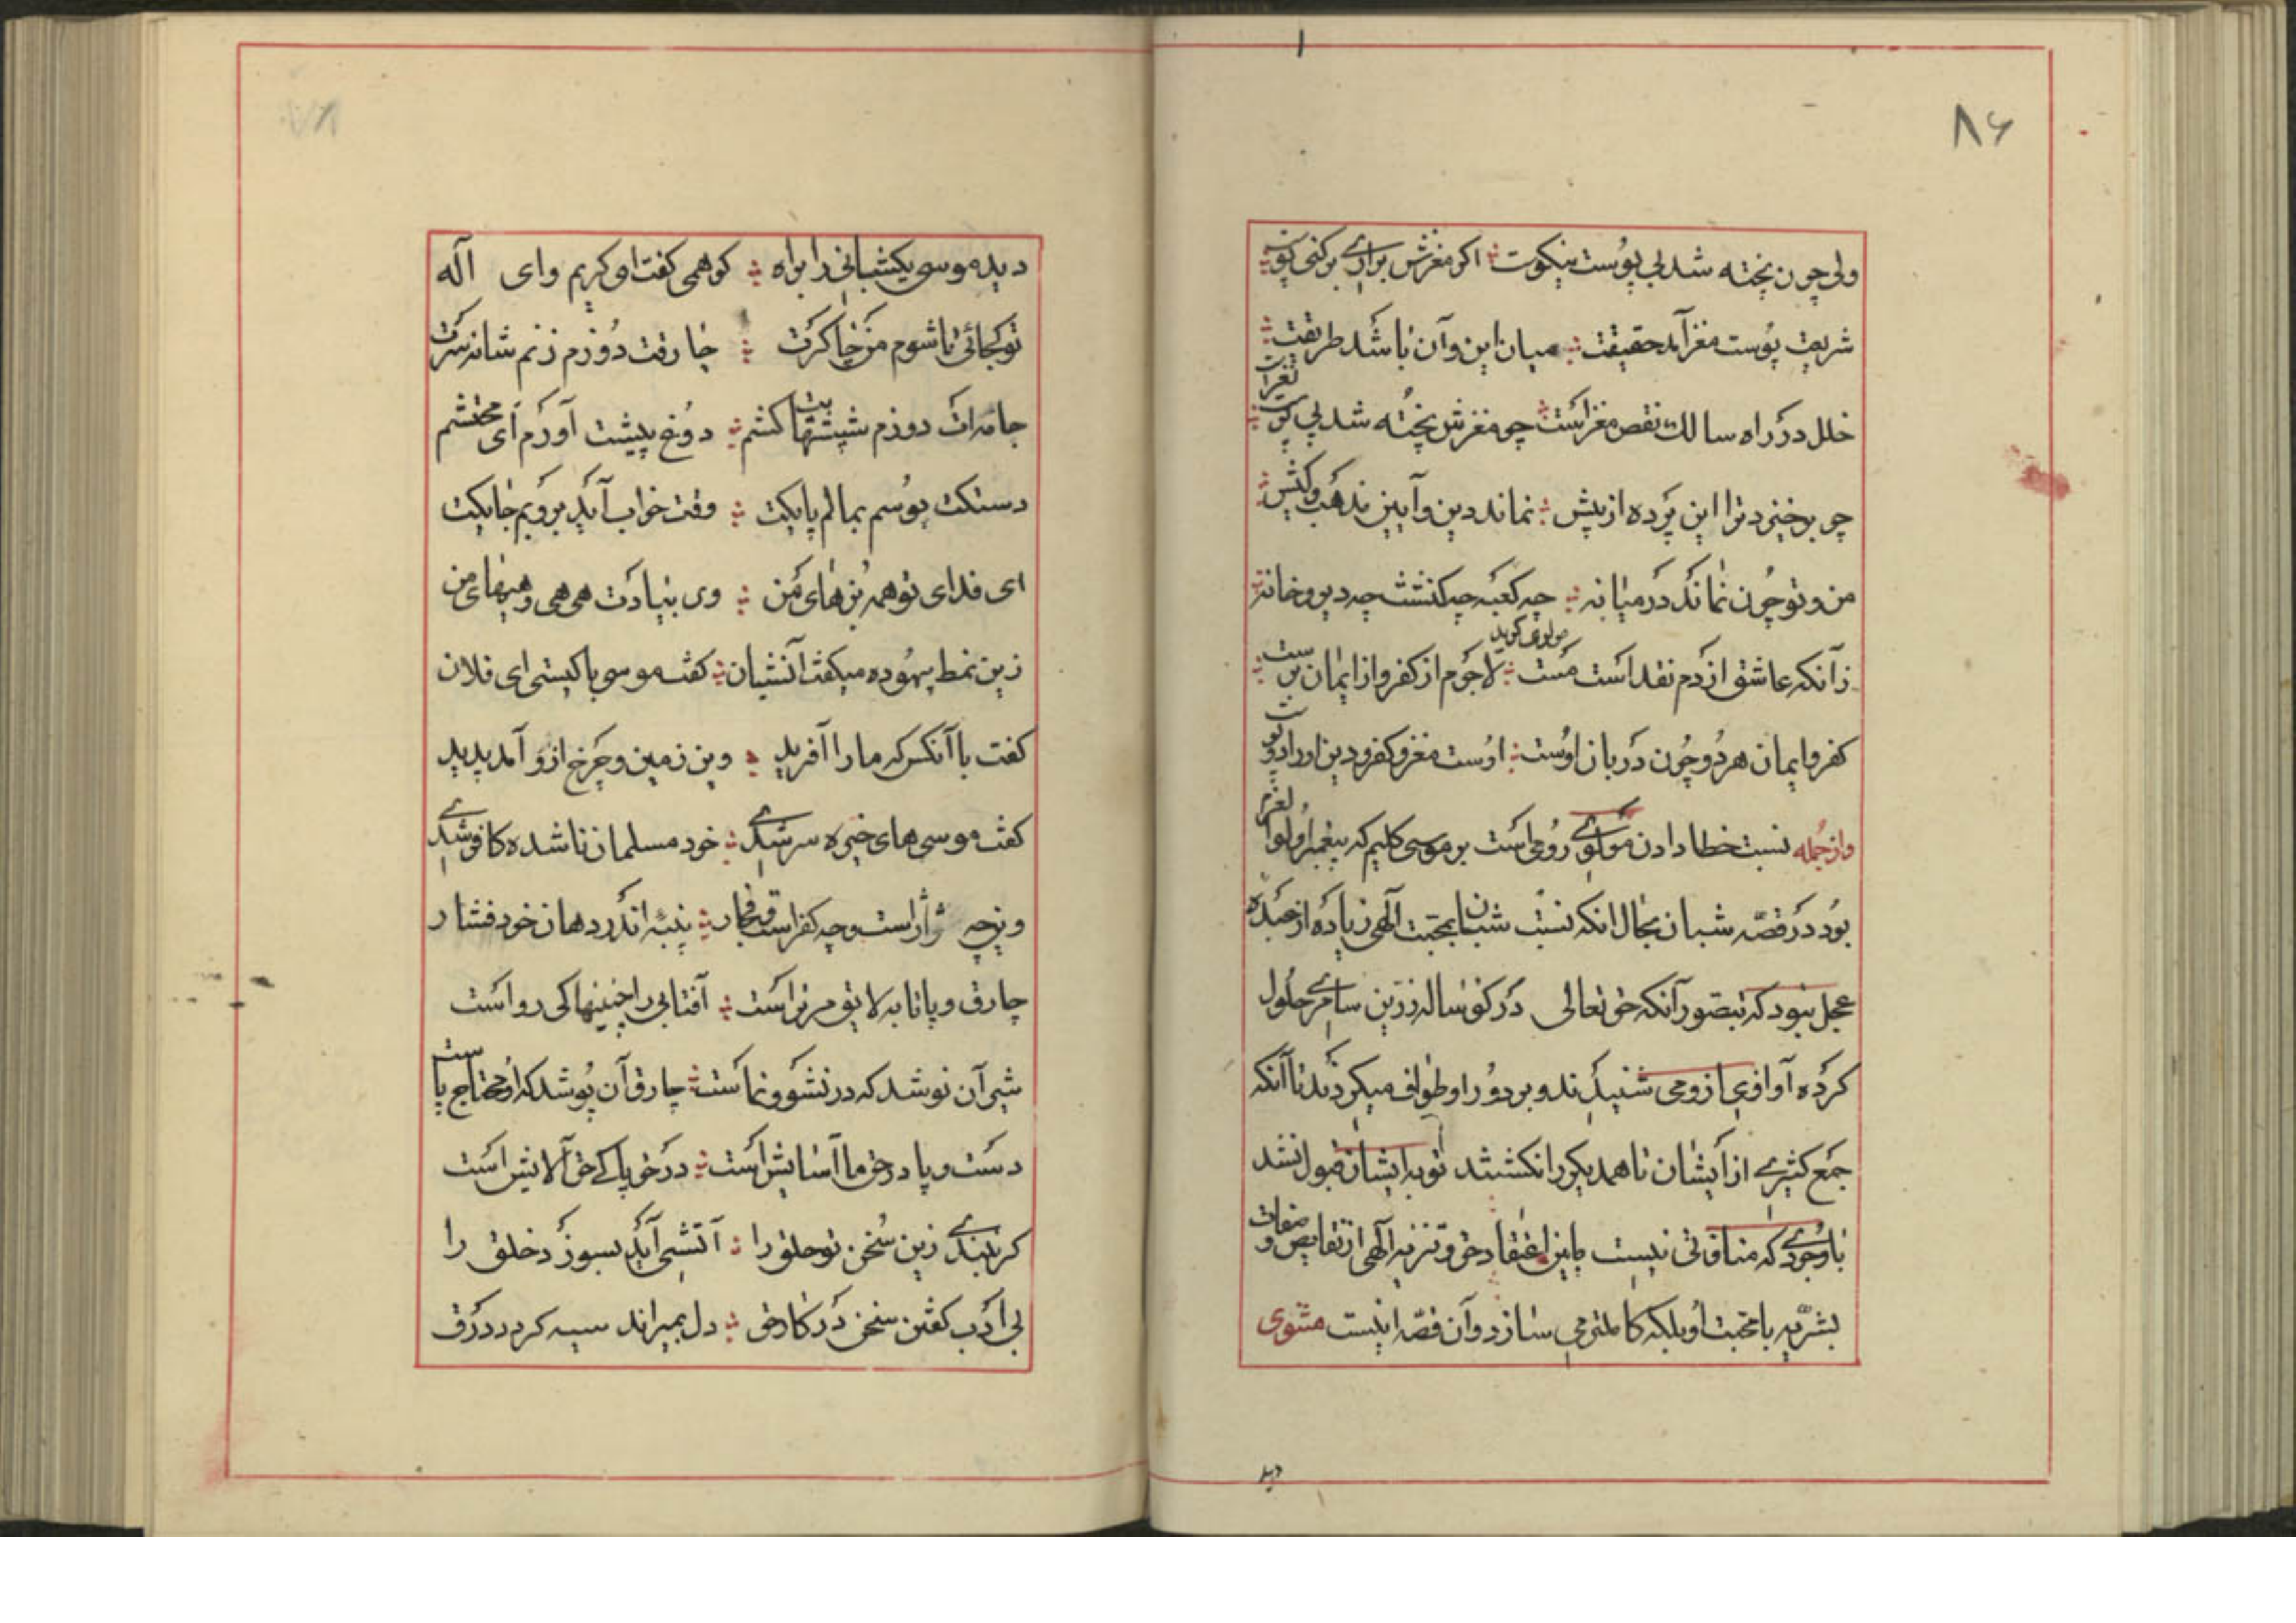 ۸۶
ولی چون پخته شد بی پوست نیکوست اکر مغزش براری برکنی پوست
شریعت پوست مغز آمد حقیقت میان این و آن باشد طریقت
خلل در راه سالک نقص مغز است چو مغزش پخته شد بی پوست نغز است
چو برخیزد ترا این پرده از پیش نماند دین و آیین مذهب و کیش
من و تو چون نماند در میانه چه کعبه چه کنشت چه دیر و خانه
مولوی کوید
زآنکه عاشق از دم نقد است مست لاجرم از کفر و از ایمان برست
کفر و ایمان هر دو چون دربان اوست اوست مغز و کفر و دین او را دو پوست
واز جمله نسبت خطا دادن مولوی رومی است بر موسی کلیم که پیغمبر اولوا لعزم
بود در قصه شبان بحال انکه نسبت شبان بمحبت آلهی زیاده از عبده
عجل نبود که بتصور آنکه حق تعالی در کوساله زرین سامری حلول
کرده آوازی از وی شنیدند و بر دور او طواف میکردند تا آنکه
جمع کثیری از ایشان تا همدیکر را نکشتند توبه ایشان قبول نشد
با وجودی که منافاتی نیست مابین اعتقاد حق و تنزیه آلهی از نقایص و صفات
بشریه با محبت او بلکه کاملتر می سازد و آن قصه اینست مثنوی
دید
دید موسی یکشبانی را براه کو همی کفت ای کریم وای آله
تو کجائی تا شوم من چاکرت چارقت دوزم زنم شانه سرت
جامه ات دوزم شپشهات کشم دوغ پیشت آورم ای محتشم
دستکت بوسم بمالم پایکت وقت خواب آید بروبم جایکت
ای فدای تو همه بزهای من وی بیادت هی هی و هیهای من
زین نمط بیهوده میکفت آنشبان کفت موسی با کیستی ای فلان
کفت با آنکس که ما را آفرید وین زمین و چرخ ازو آمد پدید
کفت موسی های خیره سر شدی خود مسلمان ناشده کافر شدی
وین چه ژاژ است و چه کفر است و فجار پنبه اندر دهان خود فشار
چارق و پاتابه لایق مر تراست آفتابی را چنینها کی رواست
شیر آن نوشد که در نشو و نماست چارق آن پوشد که او محتاج پاست
دست و پا در حق ما آسایش است در حق پاکی حق آلایش است
کر نبندی زین سخن تو حلق را آتشی آید بسوزد خلق را
بی ادب کفتن سخن در کار حق دل بمیراند سیه کردد ورق